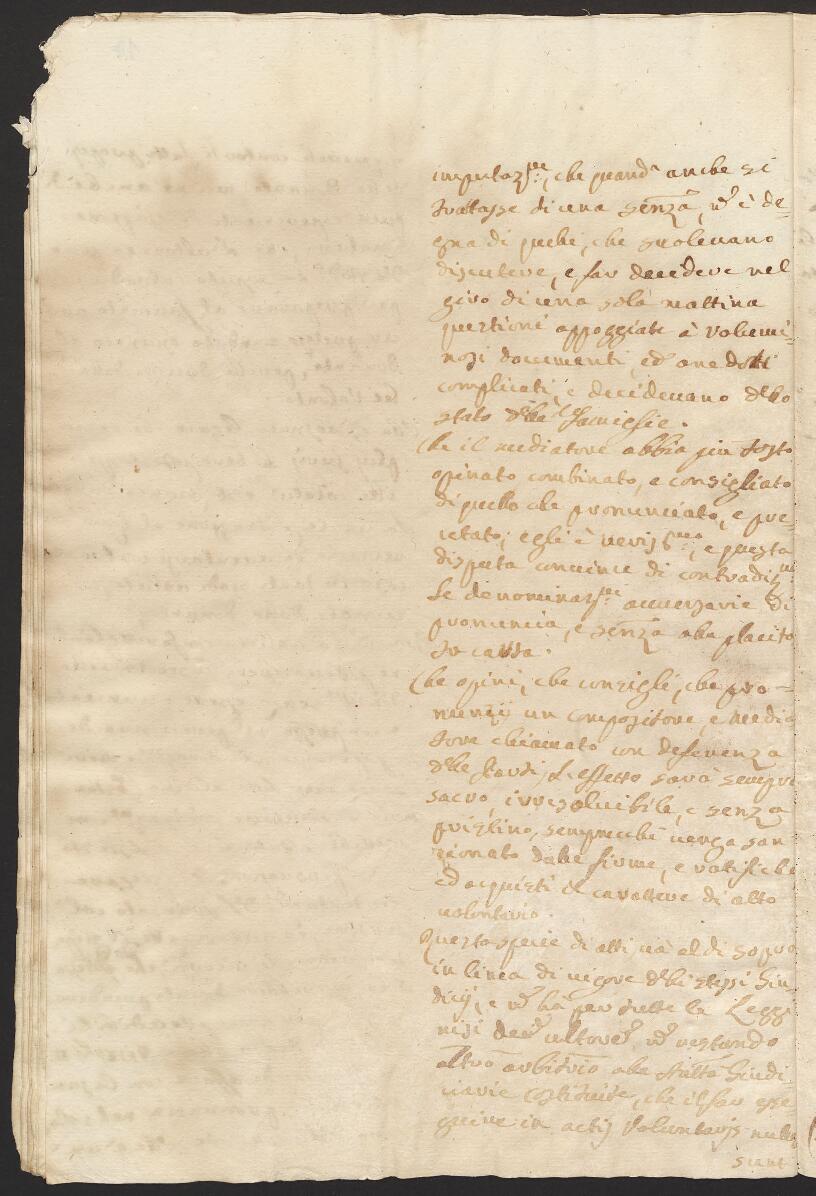 imputaz.ne, che quand' anche si
trattasse di una senza, n.° è de-
gna di quebi, che solevano
discutere, e far decidere nel
giro di una sola mattina
questioni appoggiate à volumi-
nosi documenti, ed anedotti
complicati, e decidevano debo
stato debe famiglie.
Che il mediatore abbia piu tosto
opinato combinato, e consigliato
di quello che pronunciato, e pre-
cetato; egli è veriss.mo, e questa
disputa convince di contradiz.ne
le denominaz.ni avversarie di
pronuncia, e senza aba placito
tu causa.
Che opini, che consigli, che pro-
nunzij un compositore, e media
tore chiamato con deferenza
debe Parti, l'effetto sarà sempre
sacro, irresolubile, e senza
pristino, sempreché venga san
zionato dabe firme, e ratifiche
ed acquisti il carattere di atto
volontario.
Questa specie di atti và al di sopra
in linea di vigore debi stessi Giu-
dicij, e n.° hà per tutte le Leggi
nisi ulteriore, n.° restando
altro arbitrio abe Giudi-
ciarie Costituite, che il far ese
guire in actij Voluntarijs nulla
sunt